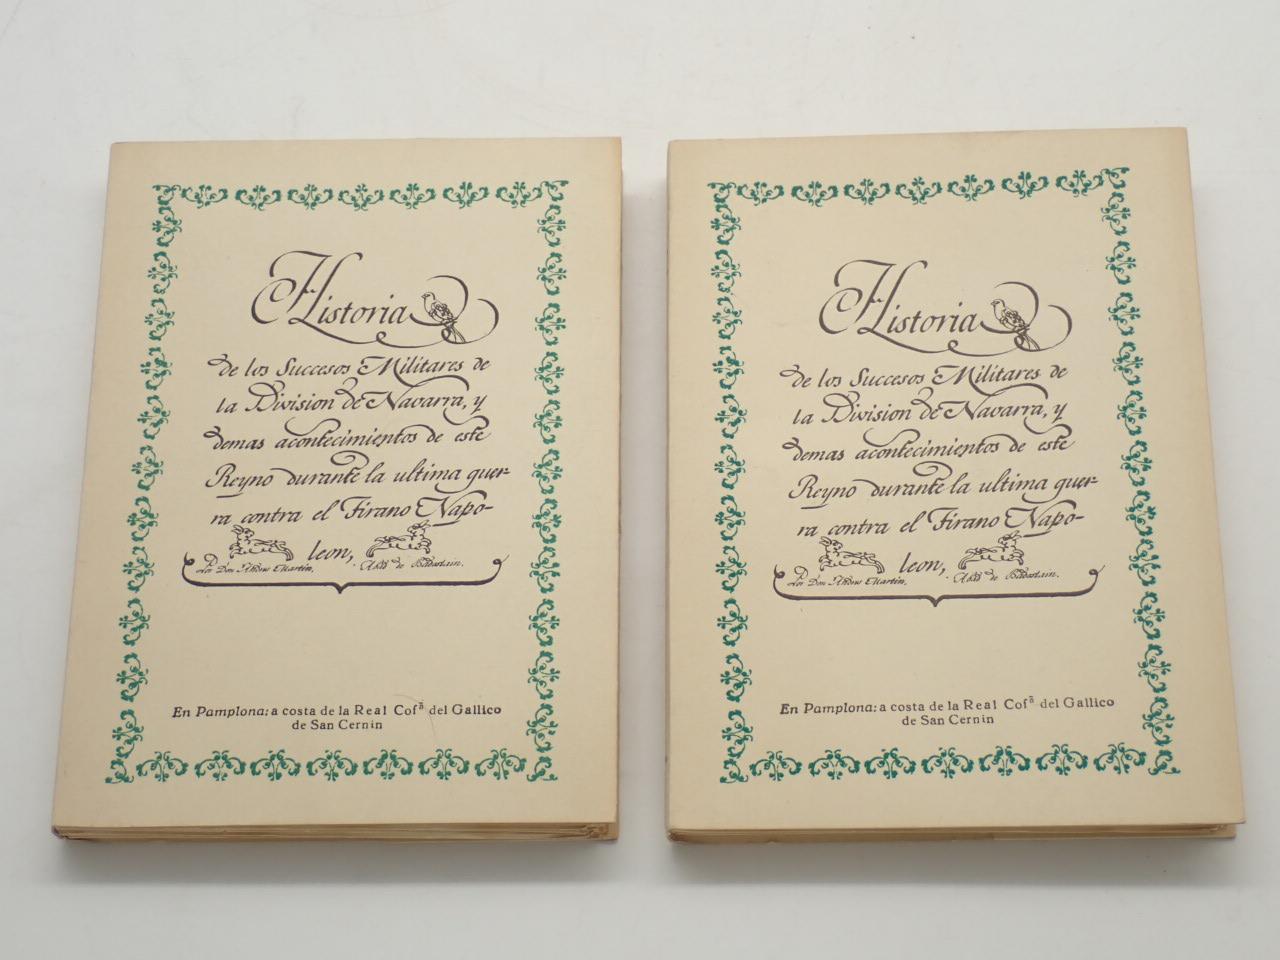 Historia
de los Succesos Militares de
la Division de Navarra, y
demas acontecimientos de este
Reyno durante la ultima guer-
ra contra el Tirano Napo-
leon,
Por Don Andres Martin, Abad de Badostain.
En Pamplona: a costa de la Real Cofª del Gallico
de San Cernin
Historia
de los Succesos Militares de
la Division de Navarra, y
demas acontecimientos de este
Reyno durante la ultima guer-
ra contra el Tirano Napo-
leon,
Por Don Andres Martin, Abad de Badostain.
En Pamplona: a costa de la Real Cofª del Gallico
de San Cernin